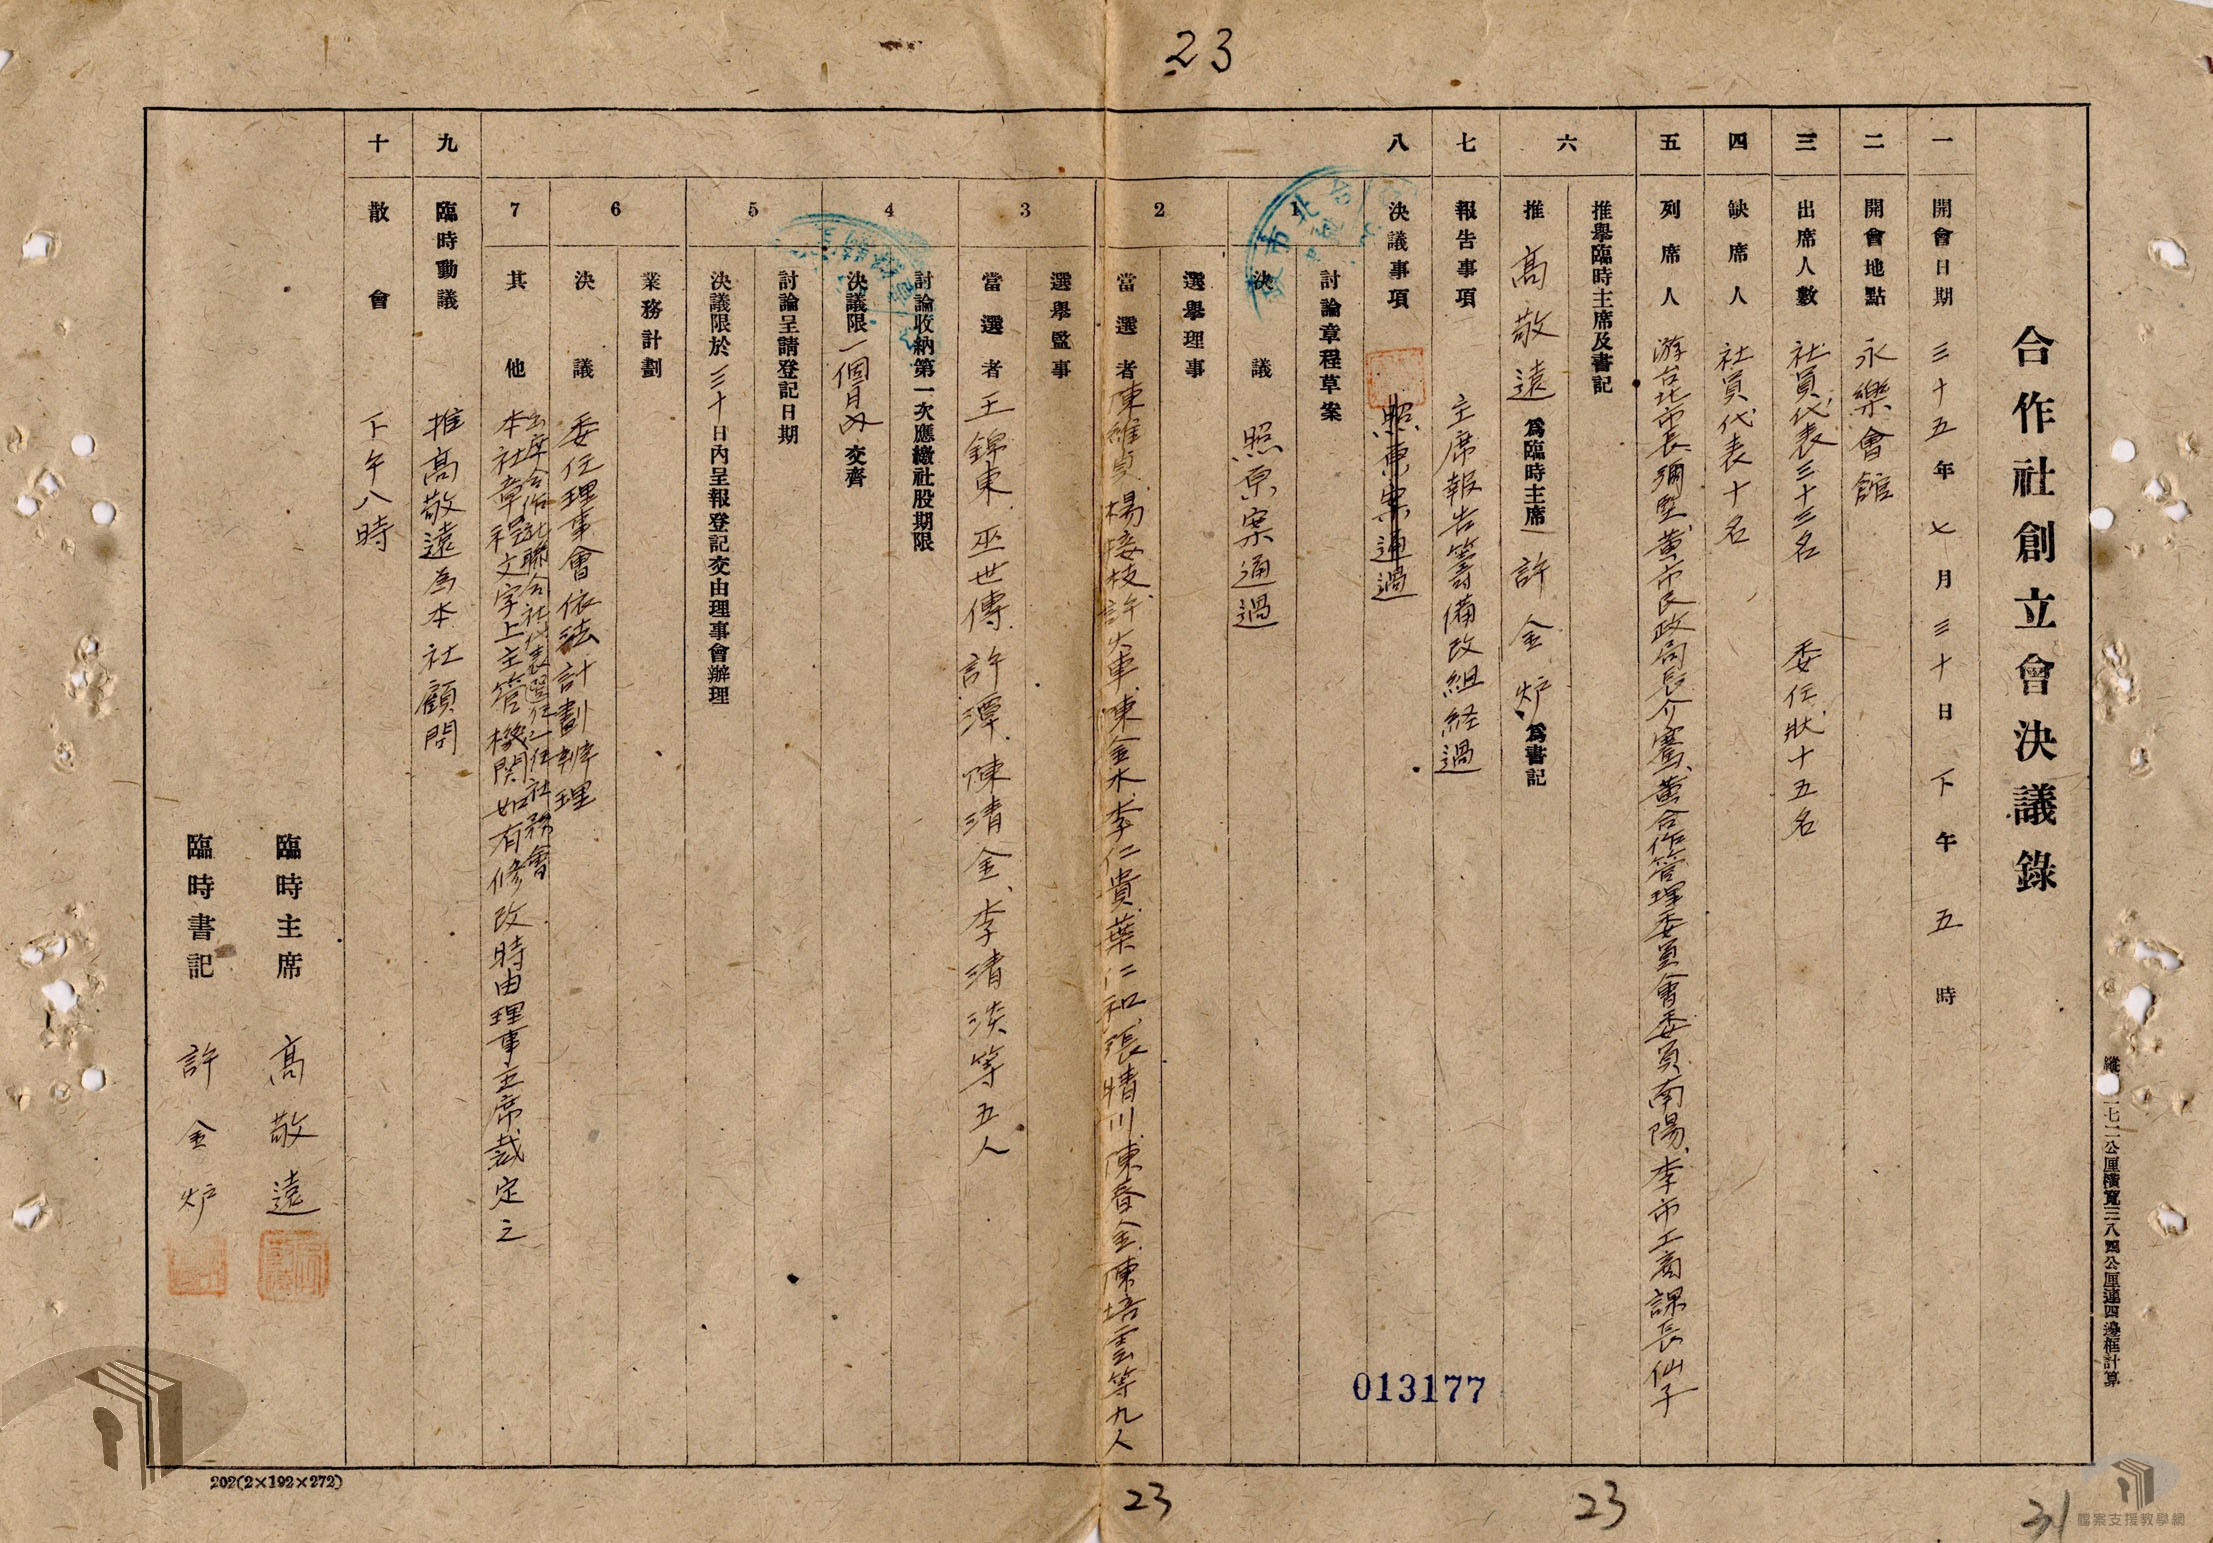 23
合作社創立會決議錄
一 開會日期 三十五年七月三十日下午五時
二 開會地點 永樂會館
三 出席人數 社員代表三十三名 委任狀十五名
四 缺席人 社員代表十名
五 列席人 游台北市長彌堅、黃市民政局長介騫、黃合作管理委員會委員南陽、李市工商課長仙子
六 推舉臨時主席及書記
推 高敬遠 為臨時主席 許金炉 為書記
七 報告事項 主席報告籌備改組経過
八 決議事項 照原案通過
1 討論章程草案
決議 照原案通過
2 選舉理事
當選者 陳維貞、楊接枝、許火車、陳金水、李仁貴、葉仁和、張晴川、陳春金、陳培雲等九人
3 選舉監事
當選者 王錦東、巫世傳、許潭、陳清金、李清淡等五人
4 討論收納第一次應繳社股期限
決議限 一個月內 交齊
5 討論呈請登記日期
決議限於 三十 日內呈報登記交由理事會辦理
6 業務計劃
決議 委任理事會依法計劃辦理
7 其他 出席合作社聯合社代表選任一任社務會
本社章程文字上主管機関如有修改時由理事主席裁定之
九 臨時動議 推高敬遠為本社顧問
十 散會 下午八時
臨時主席 高敬遠
臨時書記 許金炉
公厘橫寬三八四公厘連四邊框計算
013177
202(2×192×272)
23
23
31
檔案支援教學網